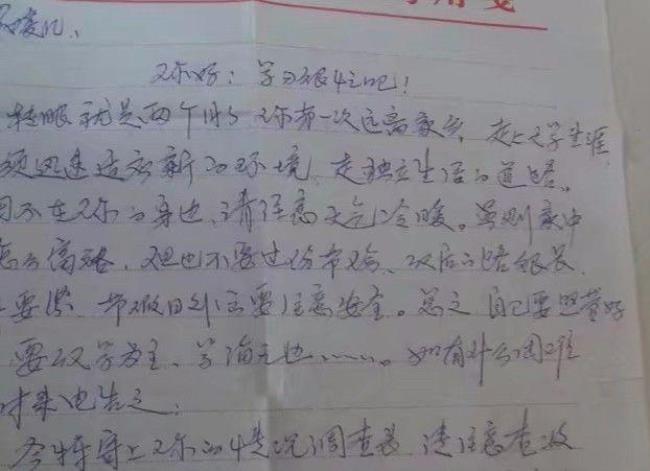 用笺
你好：学习很忙吧！
转眼就是两个月了 你第一次远离家乡，走上大学生涯
须迅速适应新的环境，走独立生活的道路。
不在你的身边，请注意天气冷暖。虽则家中
富裕，但也不要过份节俭、以后的路很长，
要 节假日外出要注意安全。总之 自己要照管好
要以学为主、学海无边……。如有什么困难
时来电告之：
今特寄上你的情况调查表 请注意查收